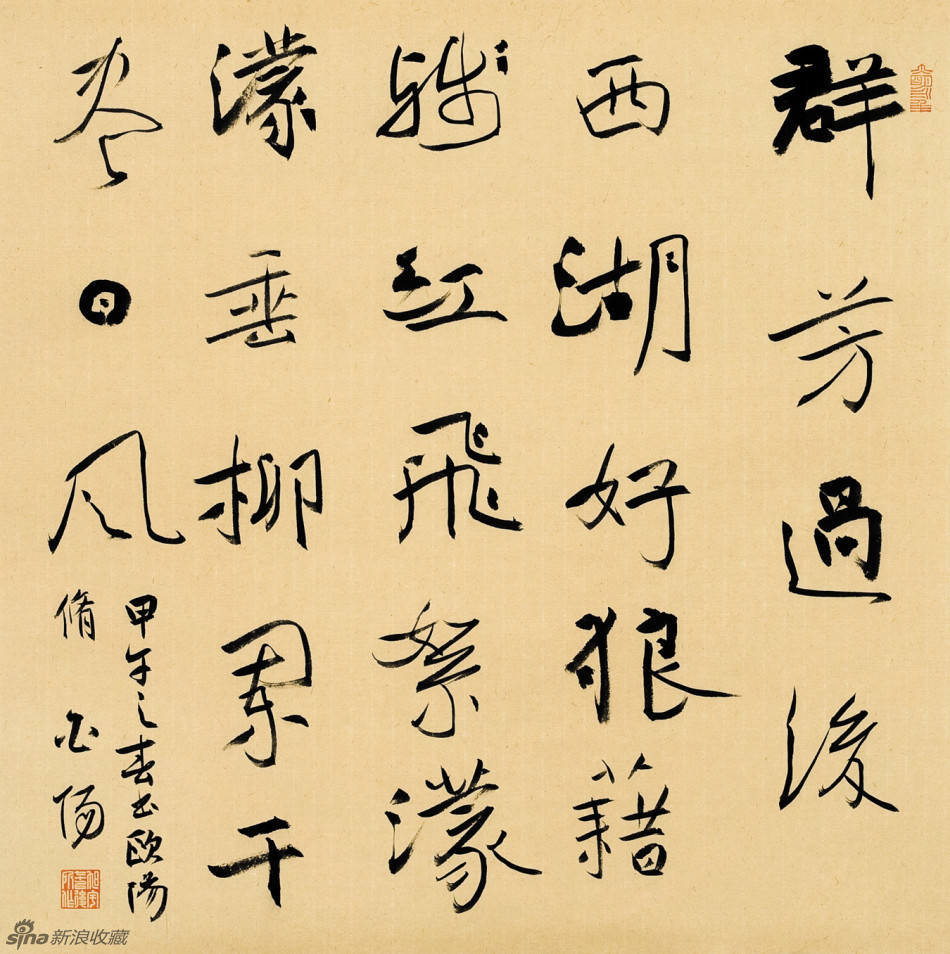 群芳過後
西湖好狼藉
殘紅飛絮濛
濛垂柳闌干
盡日風
甲午之春書歐陽
脩
sina新浪收藏